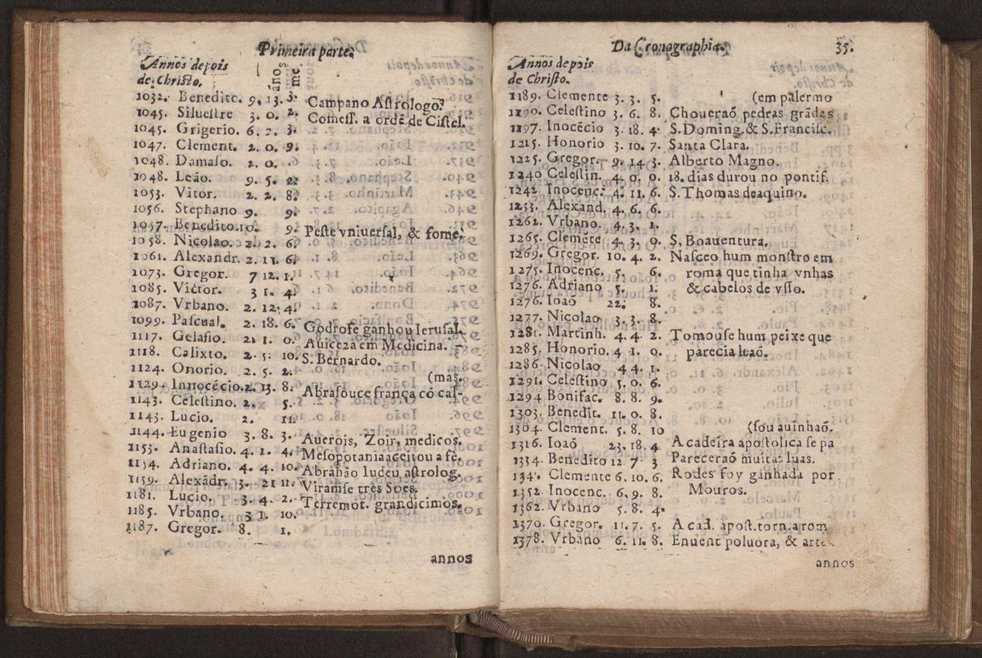 Primeira parte.
Annos depois
de Christo.
1032. Benedito. 9. 13. 3. Campano Astrologo.
1045. Siluestre 3. 0. 2. Comess. a ordẽ de Cistel.
1045. Grigerio. 6. 2. 3.
1047. Clement. 2. 0. 9.
1048. Damaso. 2. 0.
1048. Leão. 9. 5. 2.
1053. Vitor. 2. 2. 8.
1056. Stephano 9. 9.
1057. Benedito. 10. 9. Peste vniuersal, & fome.
1058. Nicolao. 2. 2. 6.
1061. Alexandr. 2. 11. 6.
1073. Gregor. 7 12. 1.
1085. Victor. 3 1. 4.
1087. Vrbano. 2. 12. 4.
1099. Pascual. 2. 18. 6. Godrofe ganhou Ierusal.
1117. Gelasio. 2. 1. 0. Auiceza em Medicina.
1118. Calixto. 2. 5. 10. S. Bernardo.
1124. Onorio. 2. 5. 2. (mas.
1129. Innocẽcio. 2. 13. 8. Abrasouce frança cõ cal-
1143. Celestino. 2. 5.
1143. Lucio. 2. 11.
1144. Eugenio 3. 8. 3. Auerois, Zoir, medicos.
1153. Anastasio. 4. 1. 4. Mesopotania aceitou a fé.
1154. Adriano. 4. 4. 10. Abrahão Iudeu astrolog.
1159. Alexãdr. 3. 21 11. Viramse tres Soes.
1181. Lucio. 3. 4. 2. Terremot. grandicimos.
1185. Vrbano. 3 1. 10.
1187. Gregor. 8. 1.
annos
Da Cronographia. 35.
Annos depois
de Christo.
1189. Clemente 3. 3. 5. (em palermo
1190. Celestino 3. 6. 8. Chouerão pedras grãdas
1197. Inocẽcio 3. 18. 4. S. Doming. & S. Francisc.
1215. Honorio 3. 10. 7. Santa Clara.
1225. Gregor. 9. 14 3. Alberto Magno.
1240 Celestin. 4. 0. 0. 18. dias durou no pontif.
1242. Inocenc. 4. 11. 6. S. Thomas deaquino.
1253. Alexand. 4. 6. 6.
1262. Vrbano. 4. 3. 1.
1265. Clemẽte 4. 3. 0. S. Boauentura.
1269. Gregor. 10. 4. 2. Nasceo hum monstro em
1275. Inocenc. 5. 6. roma que tinha vnhas
1276. Adriano 5. 1. & cabelos de vsso.
1276. Ioão 22. 8.
1277. Nicolao 3. 3. 8.
1281. Martinh. 4. 4 2. Tomouse hum peixe que
1285. Honorio. 4 1. 0. parecia leão.
1286. Nicolao 4 4. 1.
1291. Celestino 5. 0. 6.
1294 Bonifac. 8. 8. 9.
1303. Benedit. 11. 0. 8.
1304. Clement. 5. 8. 10 (sou auinhaõ.
1316. Ioaõ 23. 18. 4 A cadeira apostolica se pa
1334. Benedito 12 7 3 Parecerão muitas luas.
134. Clemente 6. 10. 6. Rodes foy ganhada por
1352. Inocenc. 6. 9. 8. Mouros.
1362. Vrbano 5. 8. 4.
1370. Gregor. 11. 7. 5. A cad. apost. torn. a rom
1378. Vrbano 6. 11. 8. Enuent poluora, & arte.
annos